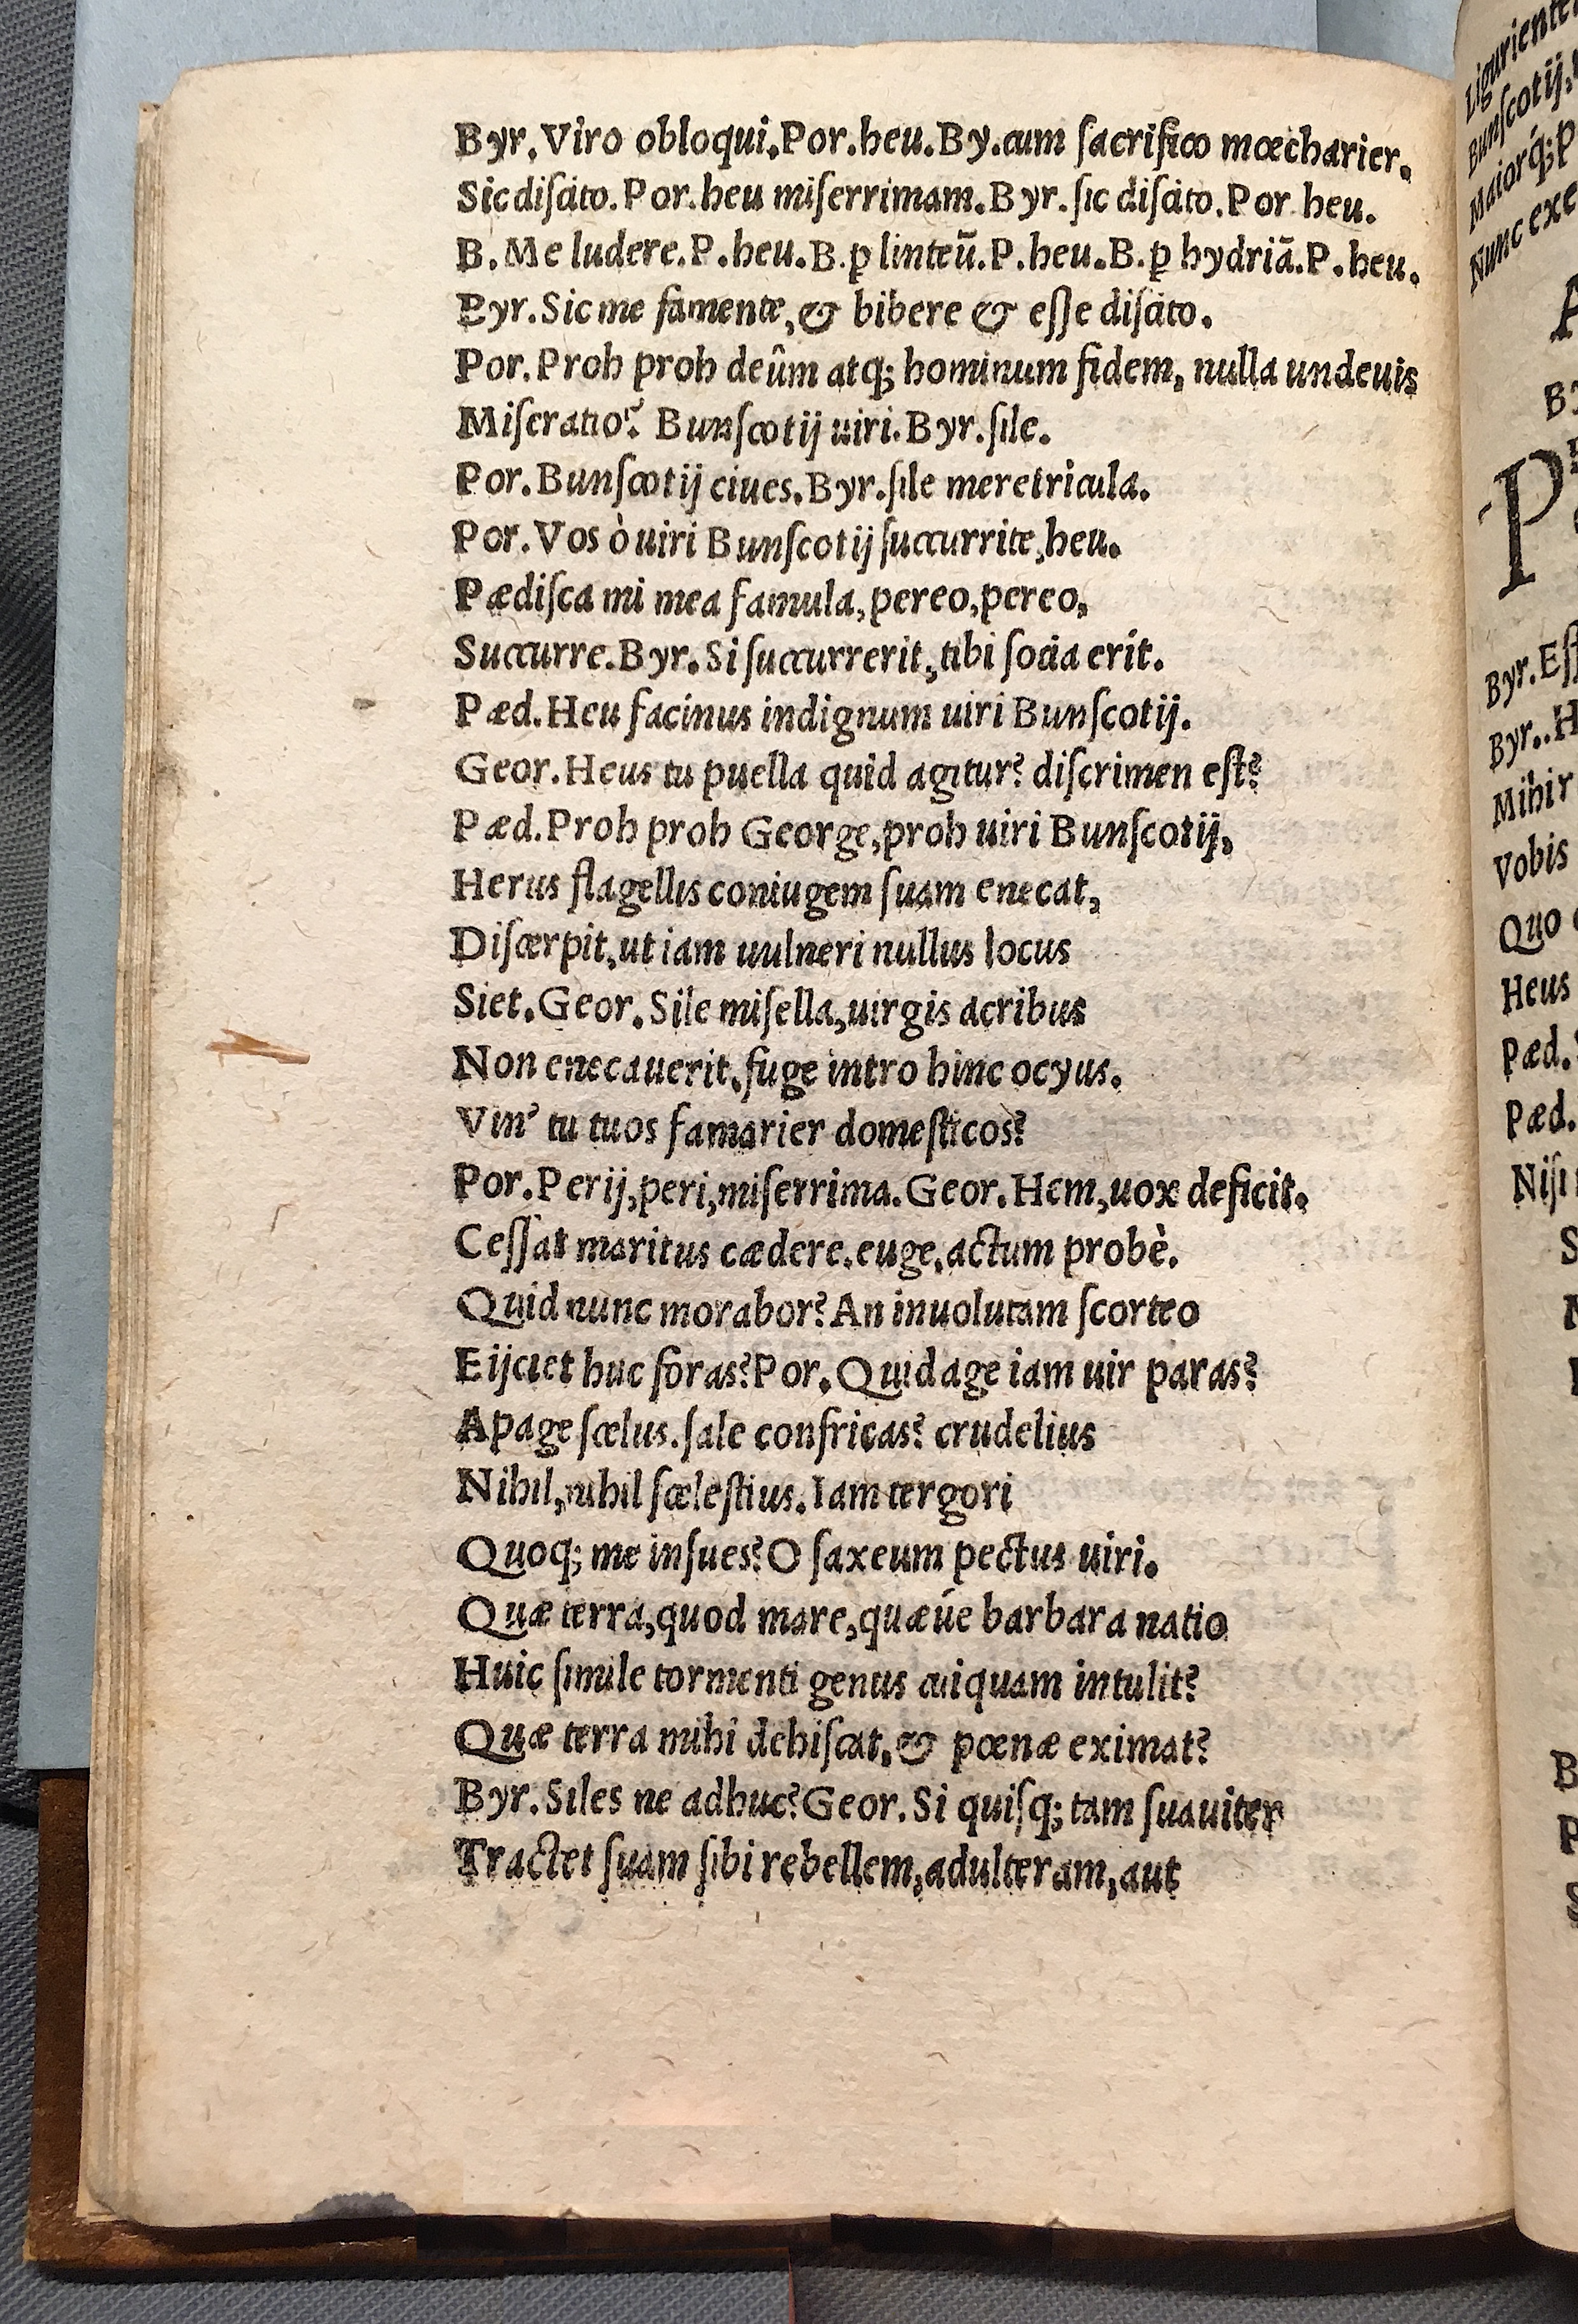 Byr. Viro obloqui. Por. heu. By. cum ſacrifico mœcharier.
Sic diſcito. Por. heu miſerrimam. Byr. ſic diſcito. Por. heu.
B. Me ludere. P. heu. B. ꝑ linteū. P. heu. B. ꝑ hydriā. P. heu.
Byr. Sic me famente, & bibere & eſſe diſcito.
Por. Proh proh deûm atq; hominum fidem, nulla undeuis
Miſeratio? Bunſcotij uiri. Byr. ſile.
Por. Bunſcotij ciues. Byr. ſile meretricula.
Por. Vos ò uiri Bunſcotij ſuccurrite, heu.
Pædiſca mi mea famula, pereo, pereo,
Succurre. Byr. Si ſuccurrerit, tibi ſocia erit.
Pæd. Heu facinus indignum uiri Bunſcotij.
Geor. Heus tu puella quid agitur? diſcrimen eſt?
Pæd. Proh proh George, proh uiri Bunſcotij,
Herus flagellis coniugem ſuam enecat,
Diſcerpit, ut iam uulneri nullus locus
Siet. Geor. Sile miſella, uirgis acribus
Non enecauerit. fuge intro hinc ocyus.
Vin' tu tuos famarier domeſticos?
Por. Perij, peri, miſerrima. Geor. Hem, uox deficit.
Ceſſat maritus cædere. euge, actum probè.
Quid nunc morabor? An inuolutam ſcorteo
Eijciet huc foras? Por. Quid age iam uir paras?
Apage ſcelus. ſale confricas? crudelius
Nihil, nihil ſceleſtius. Iam tergori
Quoq; me inſues? O ſaxeum pectus uiri.
Quæ terra, quod mare, quæúe barbara natio
Huic ſimile tormenti genus cuiquam intulit?
Quæ terra mihi dehiſcat, & pœnæ eximat?
Byr. Siles ne adhuc? Geor. Si quiſq; tam ſuauiter
Tractet ſuam ſibi rebellem, adulteram, aut
Ligurient
Bunſcotij,
Maiorq́;
Nunc exe
Byr. Eſſ
Byr.. H
Mihi r
Vobis
Quo
Heus
Pæd.
Pæd.
Niſi